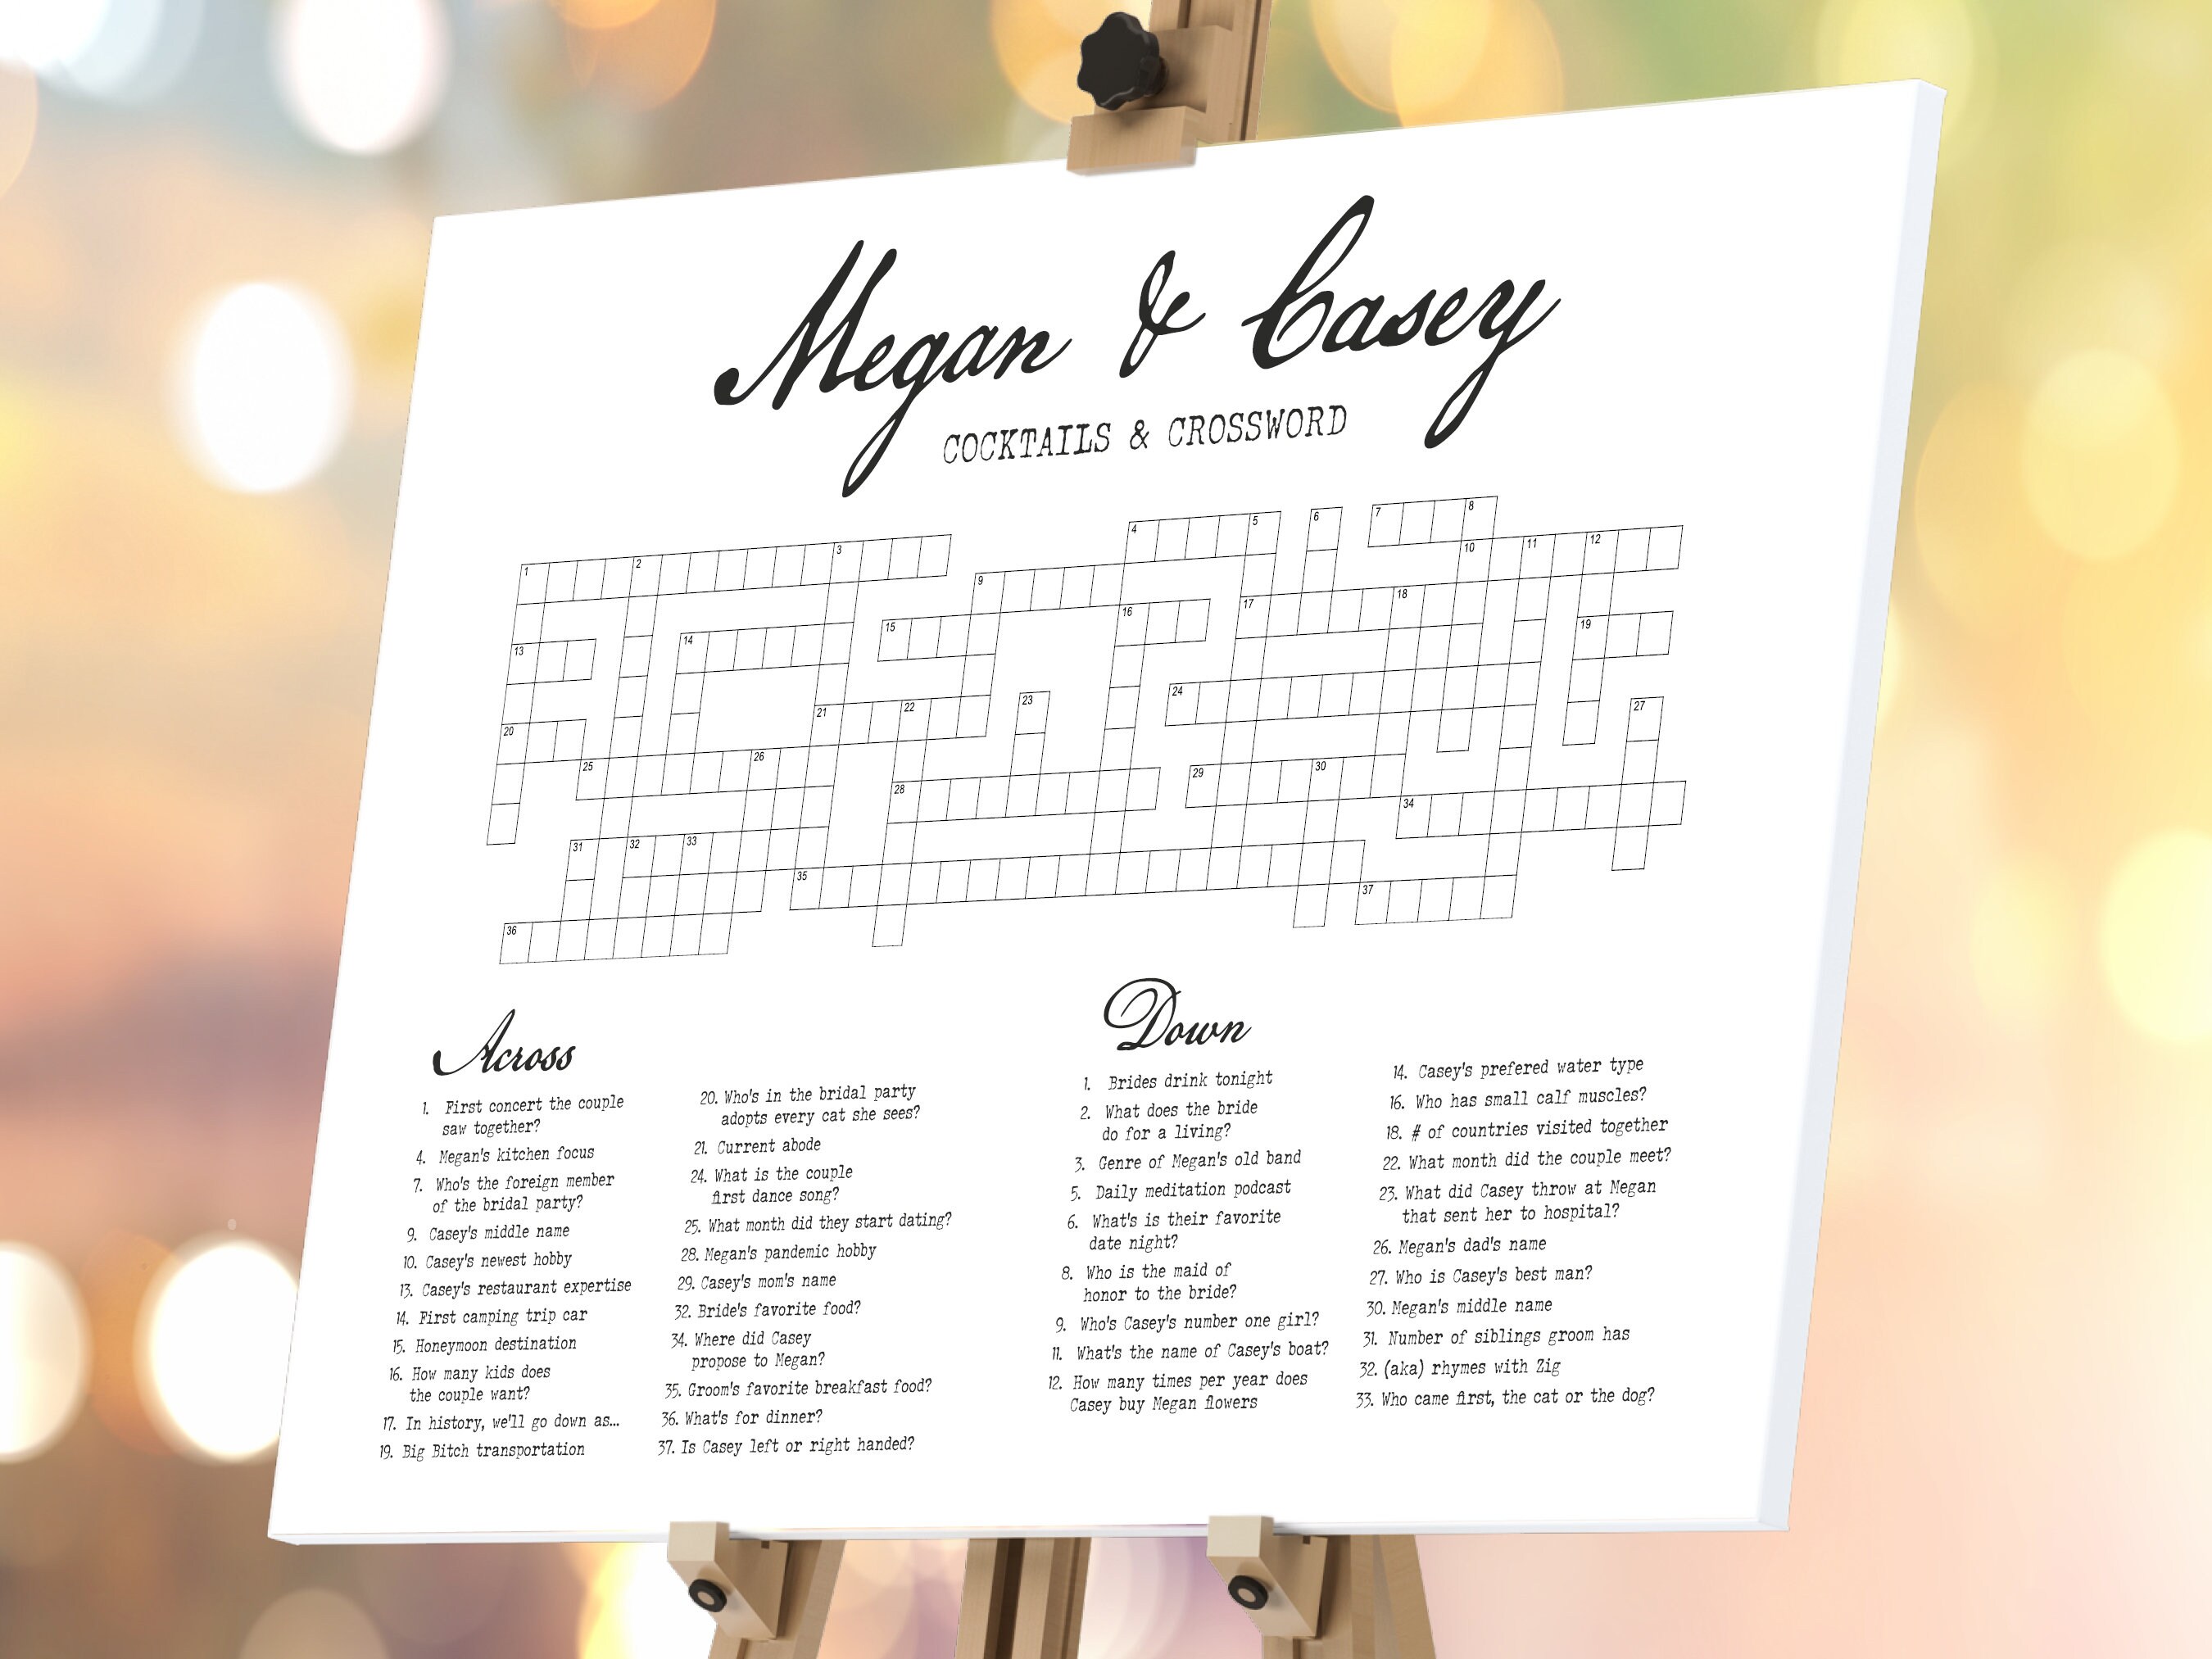 Megan & Casey
COCKTAILS & CROSSWORD
1 2 3 4 5 6 7 8
9 10 11 12
13 14 15 16 17 18 19
20 21 22 23 24 27
25 26 28 29 30
31 32 33 34
35 36 37
Across
1. First concert the couple
saw together?
4. Megan's kitchen focus
7. Who's the foreign member
of the bridal party?
9. Casey's middle name
10. Casey's newest hobby
13. Casey's restaurant expertise
14. First camping trip car
15. Honeymoon destination
16. How many kids does
the couple want?
17. In history, we'll go down as...
19. Big Bitch transportation
20. Who's in the bridal party
adopts every cat she sees?
21. Current abode
24. What is the couple
first dance song?
25. What month did they start dating?
28. Megan's pandemic hobby
29. Casey's mom's name
32. Bride's favorite food?
34. Where did Casey
propose to Megan?
35. Groom's favorite breakfast food?
36. What's for dinner?
37. Is Casey left or right handed?
Down
1. Brides drink tonight
2. What does the bride
do for a living?
3. Genre of Megan's old band
5. Daily meditation podcast
6. What's is their favorite
date night?
8. Who is the maid of
honor to the bride?
9. Who's Casey's number one girl?
11. What's the name of Casey's boat?
12. How many times per year does
Casey buy Megan flowers
14. Casey's prefered water type
16. Who has small calf muscles?
18. # of countries visited together
22. What month did the couple meet?
23. What did Casey throw at Megan
that sent her to hospital?
26. Megan's dad's name
27. Who is Casey's best man?
30. Megan's middle name
31. Number of siblings groom has
32. (aka) rhymes with Zig
33. Who came first, the cat or the dog?